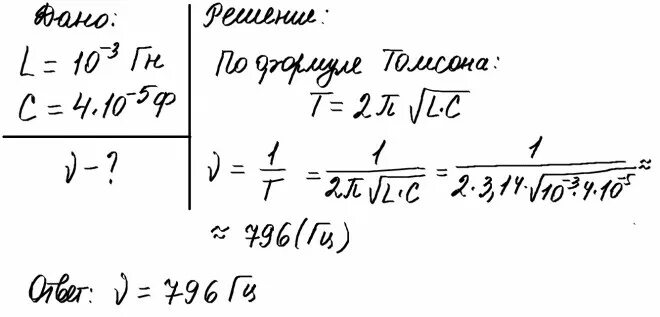 Дано:
L = 10⁻³ Гн
C = 4·10⁻⁵ Ф
ν - ?
Решение:
По формуле Томсона:
T = 2π √L·C
ν = 1/T = 1/(2π√L·C) = 1/(2·3,14·√10⁻³·4·10⁻⁵) ≈
≈ 796 (Гц)
Ответ: ν = 796 Гц